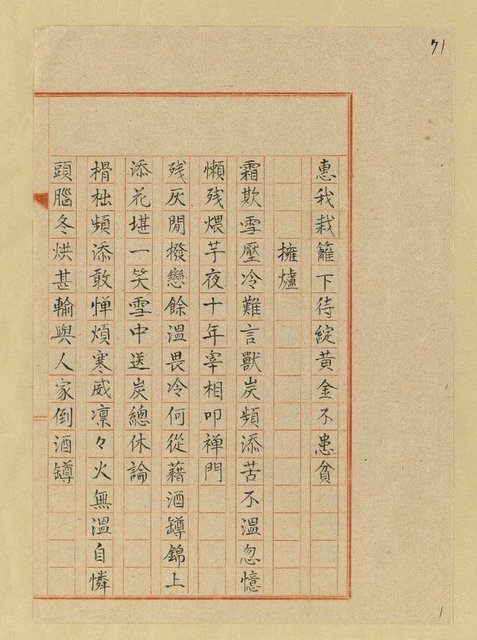 71
惠我栽籬下待綻黃金不患貧
擁爐
霜欺雪壓冷難言獸炭頻添苦不溫忽憶
懶残煨芋夜十年宰相叩禅門
残灰閒撥戀餘溫畏冷何從藉酒罇錦上
添花堪一笑雪中送炭總休論
榾柮頻添敢憚煩寒威凛々火無溫自憐
頭腦冬烘甚輸與人家倒酒罇
1